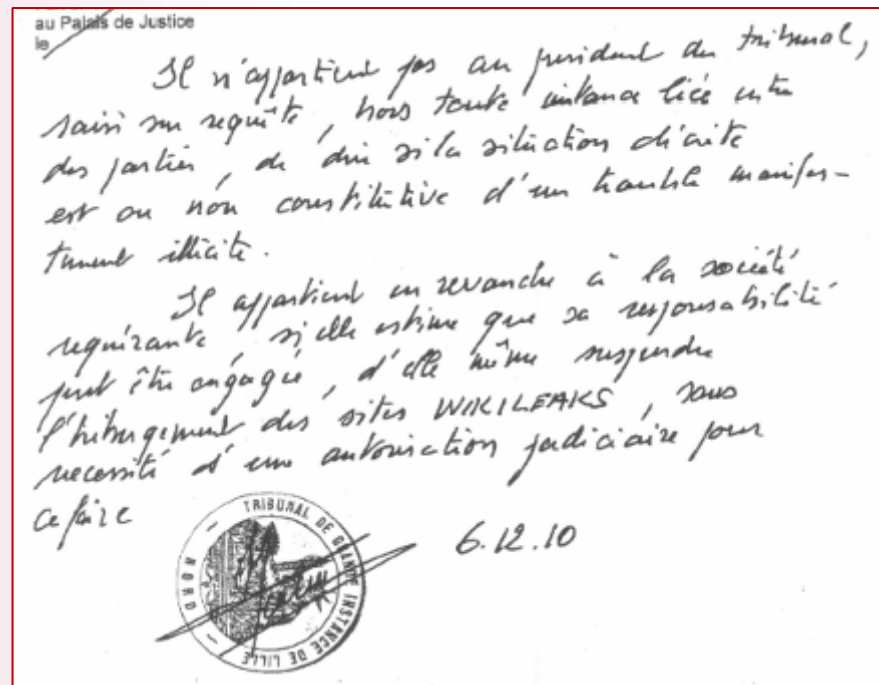 au Palais de Justice
le
Il n'appartient pas au président du tribunal,
saisi sur requête, hors toute instance liée entre
des parties, de dire si la situation décrite
est ou non constitutive d'un trouble manifes-
tement illicite.
Il appartient en revanche à la société
requérante, si elle estime que sa responsabilité
peut être engagée, d'elle même suspendre
l'hébergement des sites WIKILEAKS, sans
necessité d'une autorisation judiciaire pour
ce faire
6.12.10
TRIBUNAL DE GRANDE INSTANCE DE LILLE
NORD